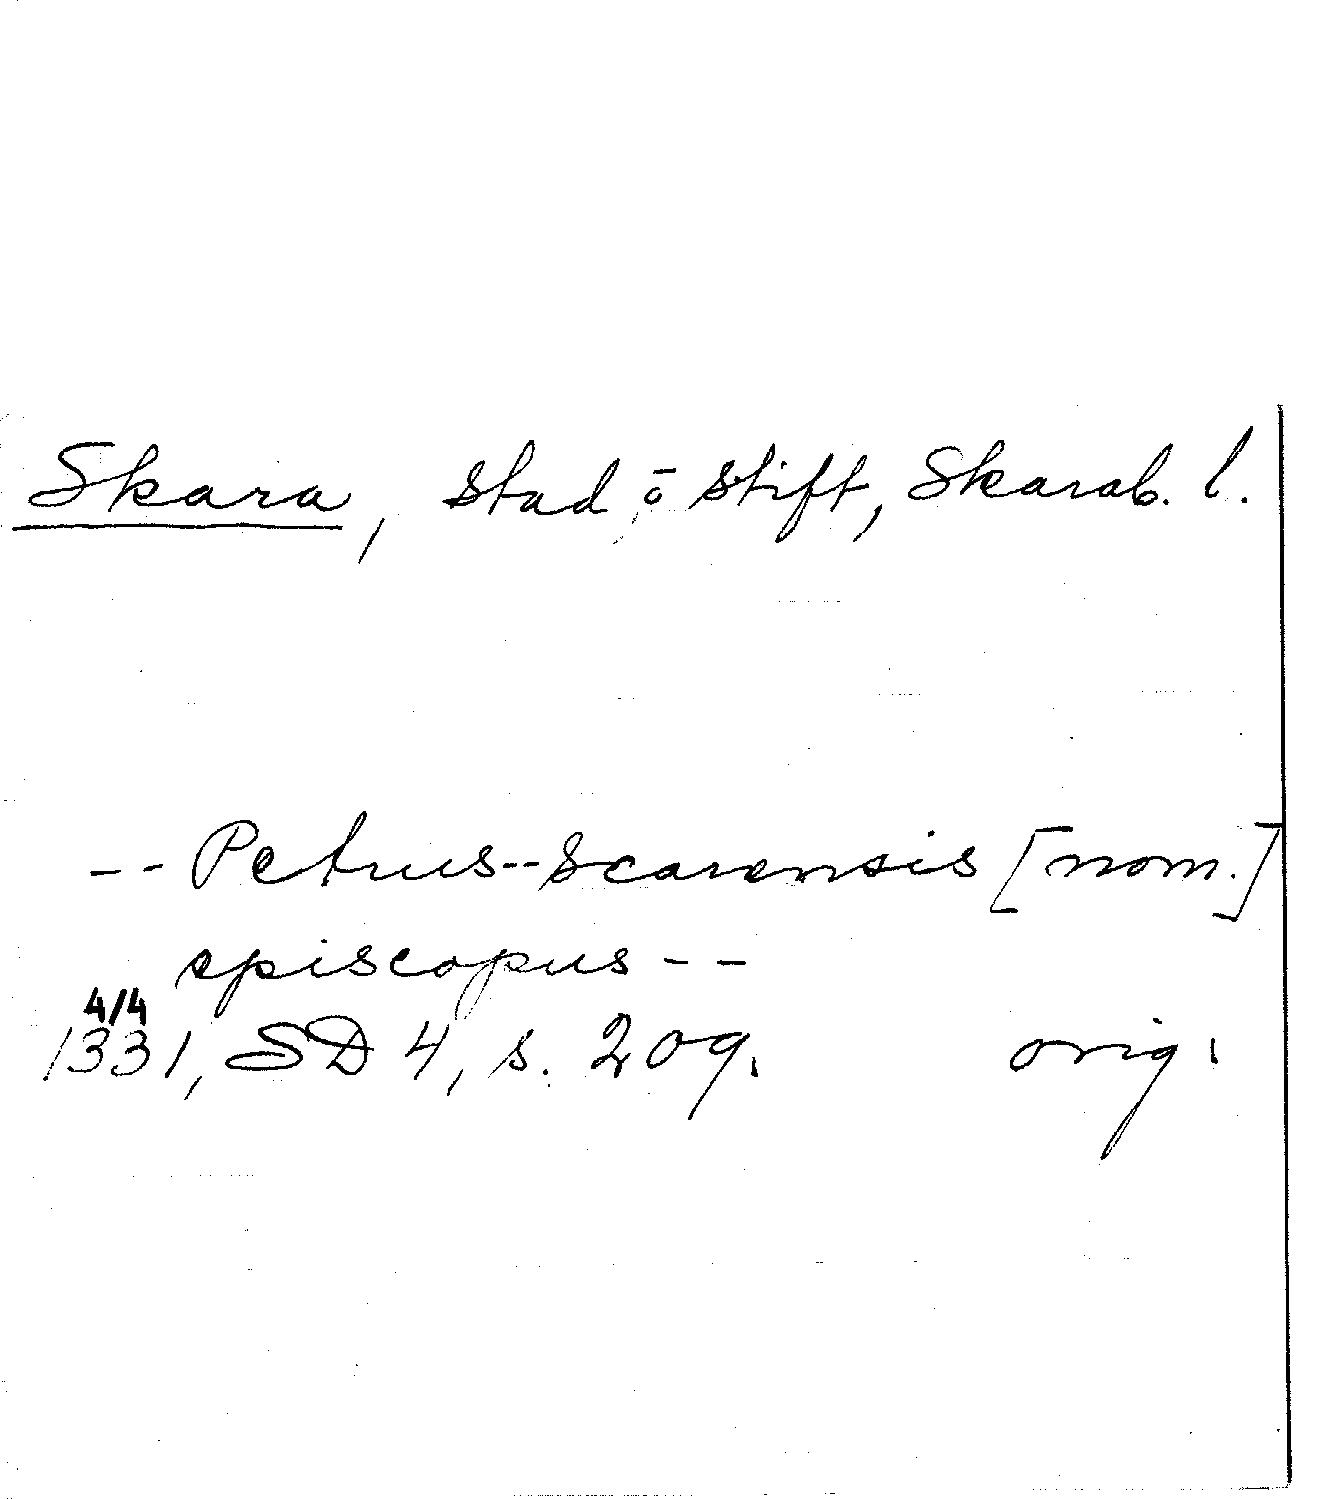 Skara, stad o stift, Skarab. l.
-- Petrus -- Scarensis [nom.]
episcopus --
4/4
1331, SD 4, s. 209. orig.